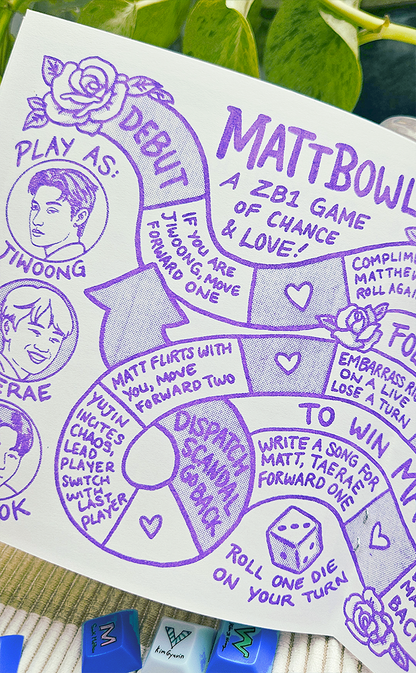 DEBUT
MATTBOWL
A ZB1 GAME
OF CHANCE
& LOVE!
PLAY AS:
JIWOONG
ERAE
OK
IF YOU ARE
JIWOONG, MOVE
FORWARD ONE
COMPLIME
MATTHEW
ROLL AGAI
FO
MATT FLIRTS WITH
YOU, MOVE
FORWARD TWO
EMBARRASS
ON A LIVE
LOSE A TURN
TO WIN M
YUJIN
INCITES
CHAOS,
LEAD
PLAYER
SWITCH
WITH
LAST
PLAYER
DISPATCH
SCANDAL
GO BACK
WRITE A SONG FOR
MATT, TAERAE
FORWARD ONE
ROLL ONE DIE
ON YOUR TURN
MA
BACK
M
Kim Gyuvin
W